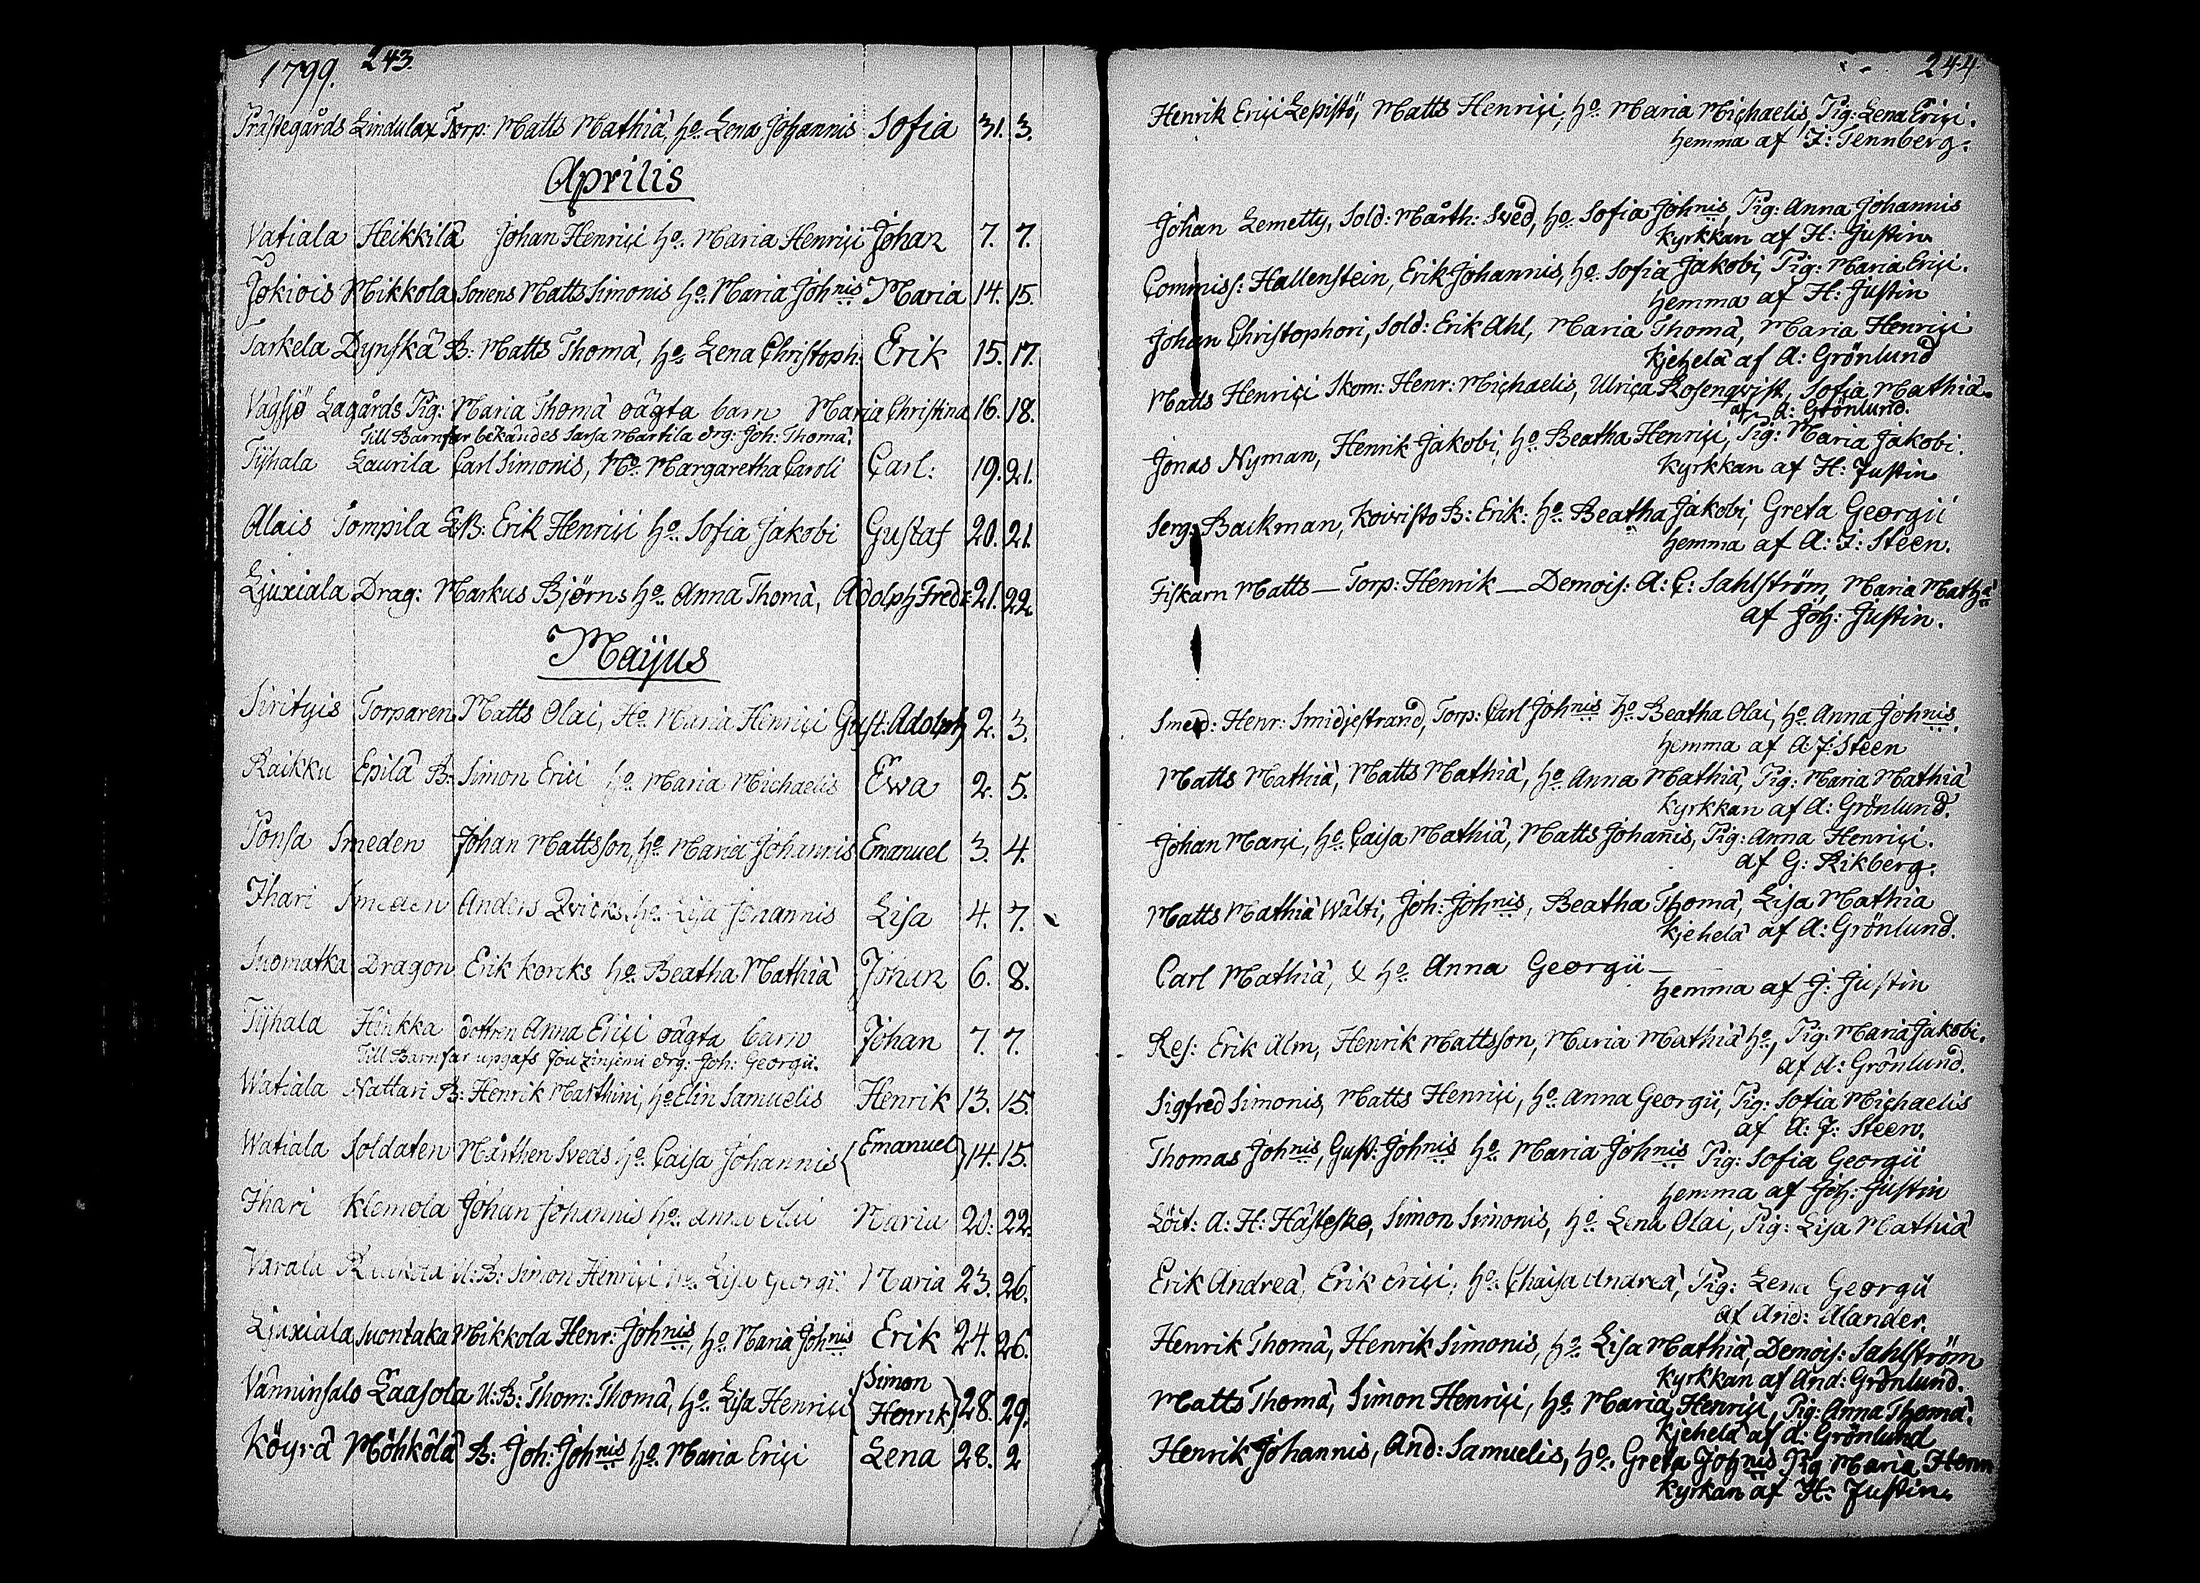 1799. 243.
Prästegårds Lindulax Torp: Matts Mathiä, ho. Lena Johannis Sofia 31. 3.
Aprilis
Vatiala Heikkilä Johan Henrici ho. Maria Henrici Johan 7. 7.
Jokiois Mikkola Sonens Matts Simonis ho. Maria Johnis Maria 14. 15.
Tarkela Dynskä B: Matts Thomä, ho. Lena Christoph: Erik 15. 17.
Vägsjö Lagårds Pig: Maria Thomä oägta barn Maria Christina 16. 18.
Till Barnfar bekändes Sarsa Martila drg: Joh: Thomä.
Tijhala Laurila Carl Simonis, Mo. Margaretha Caroli Carl: 19. 21.
Alais Tompila B: Erik Henrici ho. Sofia Jakobi Gustaf 20. 21.
Ljuxiala Drag: Markus Björns ho. Anna Thomä, Adolph Fredr: 21. 22.
Maijus
Siritzis Torparen Matts Olai, Ho. Maria Henrici Gust. Adolph 2. 3.
Raikku Epilä B: Simon Erici ho. Maria Michaelis Ewa 2. 5.
Ponsa Smeden Johan Mattsson, ho. Maria Johannis Emanuel 3. 4.
Ihari Smeden Anders Qvicks, ho. Lisa Johannis Lisa 4. 7.
Suomatka Dragon Erik korcks ho. Beatha Mathiä Johan 6. 8.
Tijhala Heikka dottren Anna Erici oägta barn Johan 7. 7.
Till Barnfar upgafs drg: Joh: Georgii.
Watiala Nattari B: Henrik Marthini, ho Elin Samuelis Henrik 13. 15.
Watiala Soldaten Mårthen Sveds ho. Caisa Johannis { Emanuel } 14. 15.
Ihari Klemola Johan Johannis ho. Anna Olai Maria 20. 22.
Varala U: B: Simon Henrici ho. Lisa Georgii Maria 23. 26.
Ljuxiala Suontaka Mikkola Henr: Johnis, ho. Maria Johnis Erik 24. 26.
Vänninsalo Laasola U: B: Thom: Thomä, ho. Lisa Henrici { Simon
Henrik } 28. 29.
Köyrä Möhkölä B: Joh: Johnis ho. Maria Erici Lena 28. 2
244.
Henrik Erici Lepistö, Matts Henrici, ho. Maria Michaelis, Pig: Lena Erici.
hemma af J: Tennberg.
Johan Lemetty, Sold: Mårth: Svéd, ho. Sofia Johnis, Pig: Anna Johannis
kyrkkan af H: Justin.
Commiss: Hallenstein, Erik Johannis, ho. Sofia Jakobi, Pig: Maria Erici.
hemma af H: Justin
Johan Christophori, Sold: Erik Ahl, Maria Thomä, Maria Henrici
kjehelä af A: Grönlund
Matts Henrici Skom: Henr: Michaelis, Ulrica Rosenqvist, Sofia Mathiä.
af A: Grönlund.
Jonas Nyman, Henrik Jakobi, ho. Beatha Henrici, Pig: Maria Jakobi.
kyrkkan af H: Justin
Serg: Backman, Koivisto B: Erik: ho. Beatha Jakobi, Greta Georgii
hemma af A: J: Steen.
Fiskarn Matts — Torp: Henrik — Demois: A: C: Sahlström, Maria Mathä
af Joh: Justin.
Smed: Henr: Smidjestrand, Torp: Carl Johnis ho Beatha Olai, ho. Anna Johnis.
hemma af A: J: Steen
Matts Mathiä, Matts Mathiä, ho. Anna Mathiä, Pig: Maria Mathiä
kyrkkan af A: Grönlund.
Johan Marci, ho. Caisa Mathiä, Matts Johan̄is, Pig: Anna Henrici.
af G: Rikberg.
Matts Mathiä Wälti, Joh: Johnis, Beatha Thomä, Lisa Mathia
kjehelä af A: Grönlund.
Carl Mathiä, & ho. Anna Georgii —
hemma af J: Justin
Res: Erik Alm, Henrik Mattsson, Maria Mathiä ho, Pig: Maria Jakobi.
af A: Grönlund.
Sigfred Simonis, Matts Henrici, ho. Anna Georgii, Pig: Sofia Michaelis
af A: J: Steen.
Thomas Johnis, Gust: Johnis ho. Maria Johnis Pig: Sofia Georgii
hemma af Joh: Justin
Löit: A: H: Hästesko, Simon Simonis, ho. Lena Olai, Pig: Lisa Mathiä
Erik Andreä, Erik Erici, ho. Chaisa Andreä, Pig: Lena Georgii
af And: Alander.
Henrik Thomä, Henrik Simonis, ho. Lisa Mathiä, Demois: Sahlström
kyrkkan af And: Grönlund.
Matts Thomä, Simon Henrici, ho. Maria Henrici, Pig: Anna Thomä.
kjehelä af A: Grönlund
Henrik Johannis, And: Samuelis, ho. Greta Johnis Pig Maria Henri
kyrkan af H: Justin.